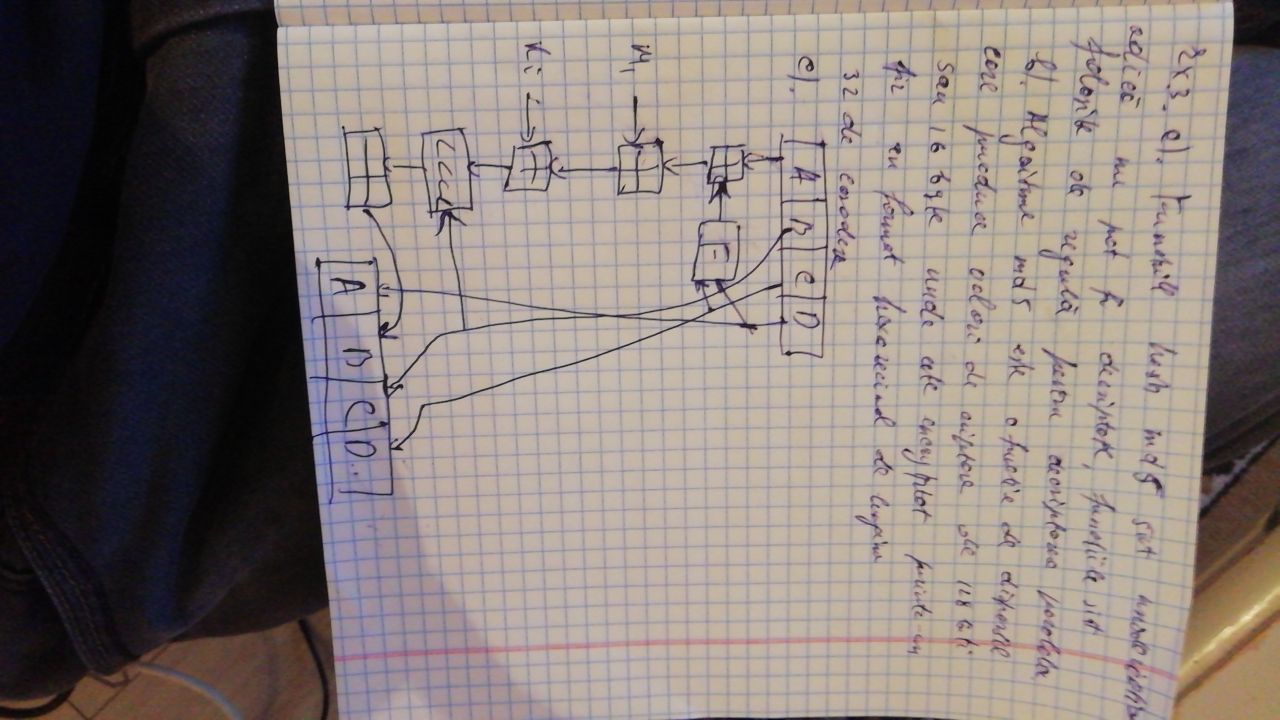 Ex3. a). Funcțiile hash md5 sunt
adică nu pot fi decriptate, funcțiile sint
folosite de regulă pentru decriptarea
b). Algoritmul md5 este o funcție de dispersie
care produce valori de criptare de 128 biti
sau 16 byte unde este encryptat printr-un
șir in format hexazecimal de lungime
32 de caractere
c).
A B C D
F
M,
Ki
A B C D..